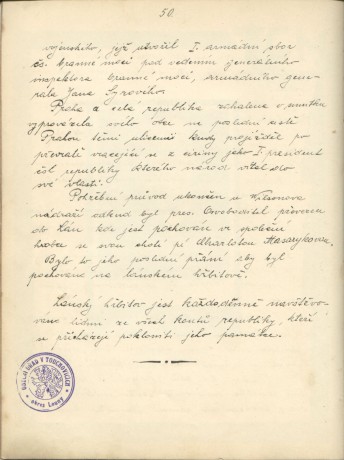 50.
vojenského, jejž utvořil I. armádní sbor
čs. branné moci pod vedením generálního
inspektora branné moci, armádního gene-
rála Jana Syrového.
Praha a celá republika zahalena v smutku
vyprovázela svého Otce na poslední cestě
Prahou těmi ulicemi kudy projížděl po
převratě vracející se z ciziny jeho I. president
čsl. republiky kterého národ vítal do
své vlasti.
Pohřební průvod ukončen u Wilsonova
nádraží odkud byl pres. Osvoboditel převezen
do Lán kde jest pochován ve společném
hrobě se svou chotí pí Charlotou Masarykovou.
Bylo to jeho poslední přání aby byl
pochován na lánském hřbitově.
Lánský hřbitov jest každodenně navštěvo-
ván lidmi ze všech koutů republiky, kteří
se přicházejí pokloniti jeho památce.
OBECNÍ ÚŘAD V TOUCHOVICÍCH
okres Louny